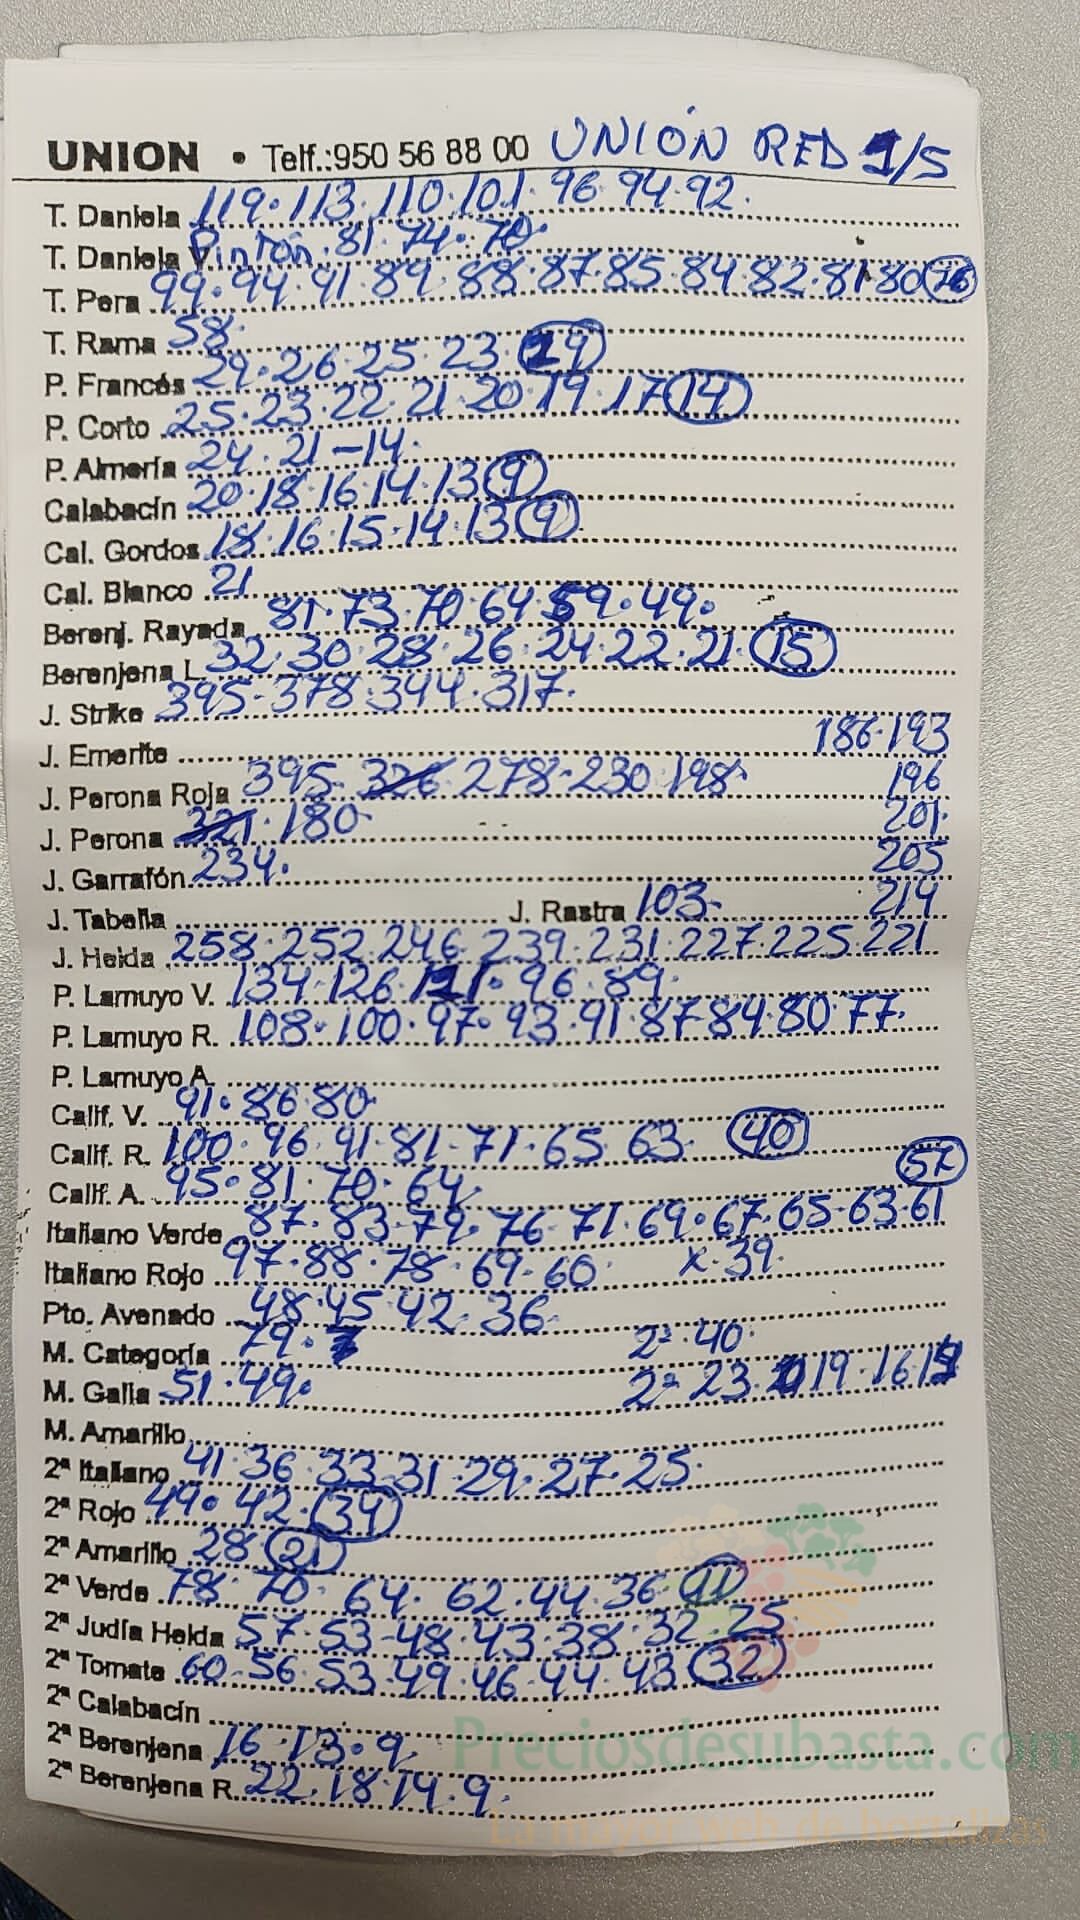 UNION • Telf.:950 56 88 00 UNIÓN RED 1/5
T. Daniela 119. 113. 110. 101. 96. 94. 92.
T. Daniela V. Pintón. 81. 74. 70.
T. Pera 99. 94. 91. 89. 88. 87. 85. 84. 82. 81. 80 76
T. Rama 58.
P. Francés 29. 26. 25. 23. 19
P. Corto 25. 23. 22. 21. 20. 19. 17 14
P. Almería 24. 21 - 14.
Calabacín 20. 18. 16. 14. 13 9
Cal. Gordos 18. 16. 15. 14. 13 9
Cal. Blanco 21
Berenj. Rayada 81. 73. 70. 64 59. 49.
Berenjena L. 32. 30. 28. 26. 24. 22. 21. 15
J. Strike 395. 378. 344. 317.
J. Emerite 186. 193
J. Perona Roja 395. 326. 278. 230. 198. 196
J. Perona 321. 180. 201.
J. Garrafón 234. 205
J. Tabella J. Rastra 103. 214
J. Helda 258. 252. 246. 239. 231. 227. 225. 221
P. Lamuyo V. 134. 126. 121. 96. 89.
P. Lamuyo R. 108. 100. 97. 93. 91. 87 84. 80. 77.
P. Lamuyo A.
Calif. V. 91. 86. 80.
Calif. R. 100. 96. 91. 81. 71. 65. 63. 40
Calif. A. 95. 81. 70. 64. 57
Italiano Verde 87. 83. 79. 76. 71. 69. 67. 65. 63. 61
Italiano Rojo 97. 88. 78. 69. 60. x. 39.
Pto. Avenado 48. 45 42. 36.
M. Categoría 79. 2ª. 40.
M. Galia 51. 49. 2ª 23. 19. 16.
M. Amarillo
2ª Italiano 41. 36. 33. 31. 29. 27. 25.
2ª Rojo 49. 42. 34
2ª Amarillo 28. 21
2ª Verde 78. 70. 64. 62. 44. 36. 11
2ª Judía Helda 57. 53. 48. 43. 38. 32. 25.
2ª Tomate 60. 56. 53. 49. 46. 44. 43 32
2ª Calabacín
2ª Berenjena 16. 13. 9.
Preciosdesubasta.com
2ª Berenjena R. 22. 18. 14. 9.
La mayor web de hortalizas